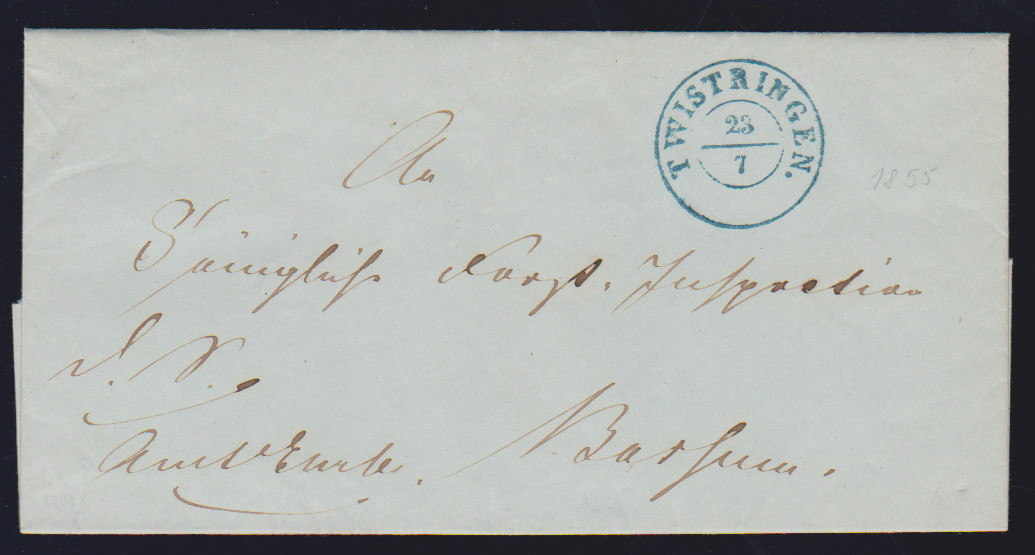 TWISTRINGEN.
23
7
1855
An
Königliche Forst-Inspection
D. S.
Bassum.